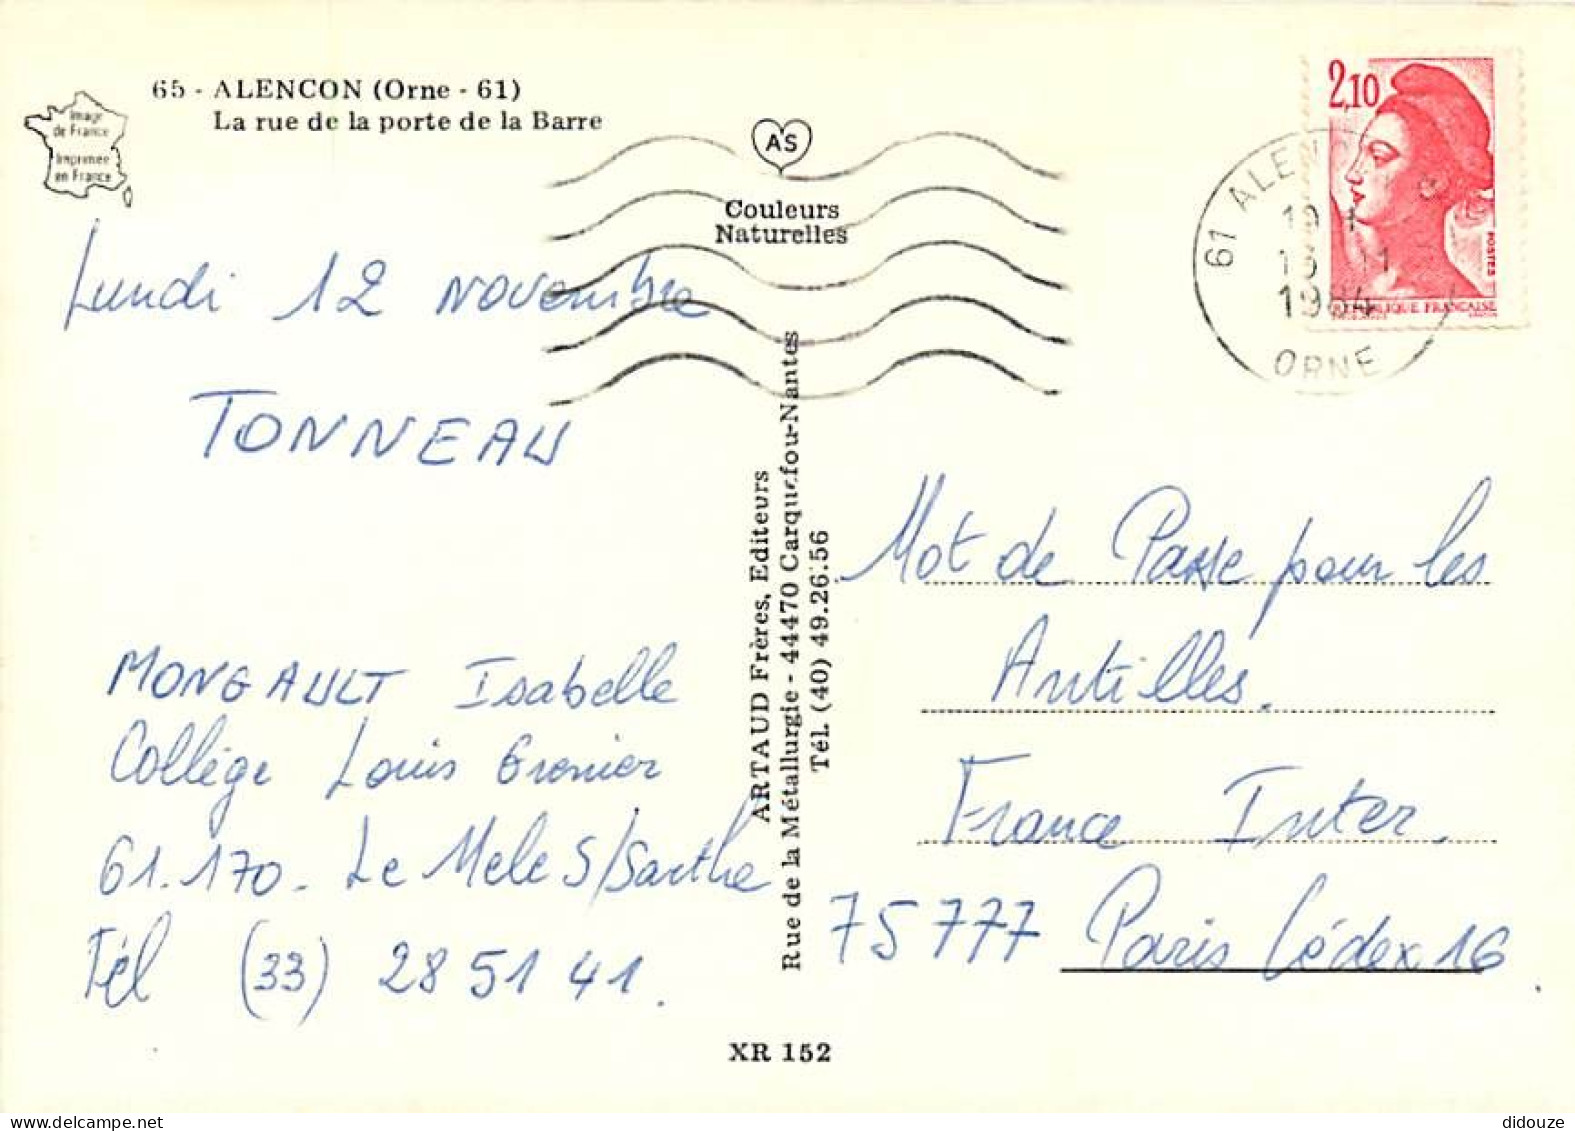 65 - ALENCON (Orne - 61)
La rue de la porte de la Barre
Image
de France
Imprimée
en France
AS
Couleurs
Naturelles
2,10
POSTES
REPUBLIQUE FRANCAISE
61 ALEN
1984
ORNE
Lundi 12 Novembre
TONNEAU
MONGAULT Isabelle
Collège Louis Grenier
61.170. Le Mele S/Sarthe
Tél (33) 28 51 41.
ARTAUD Frères, Editeurs
Rue de la Métallurgie - 44470 Carquefou-Nantes
Tél. (40) 49.26.56
Mot de Passe pour les
Antilles.
France Inter.
75777 Paris Cédex 16.
XR 152
didouze